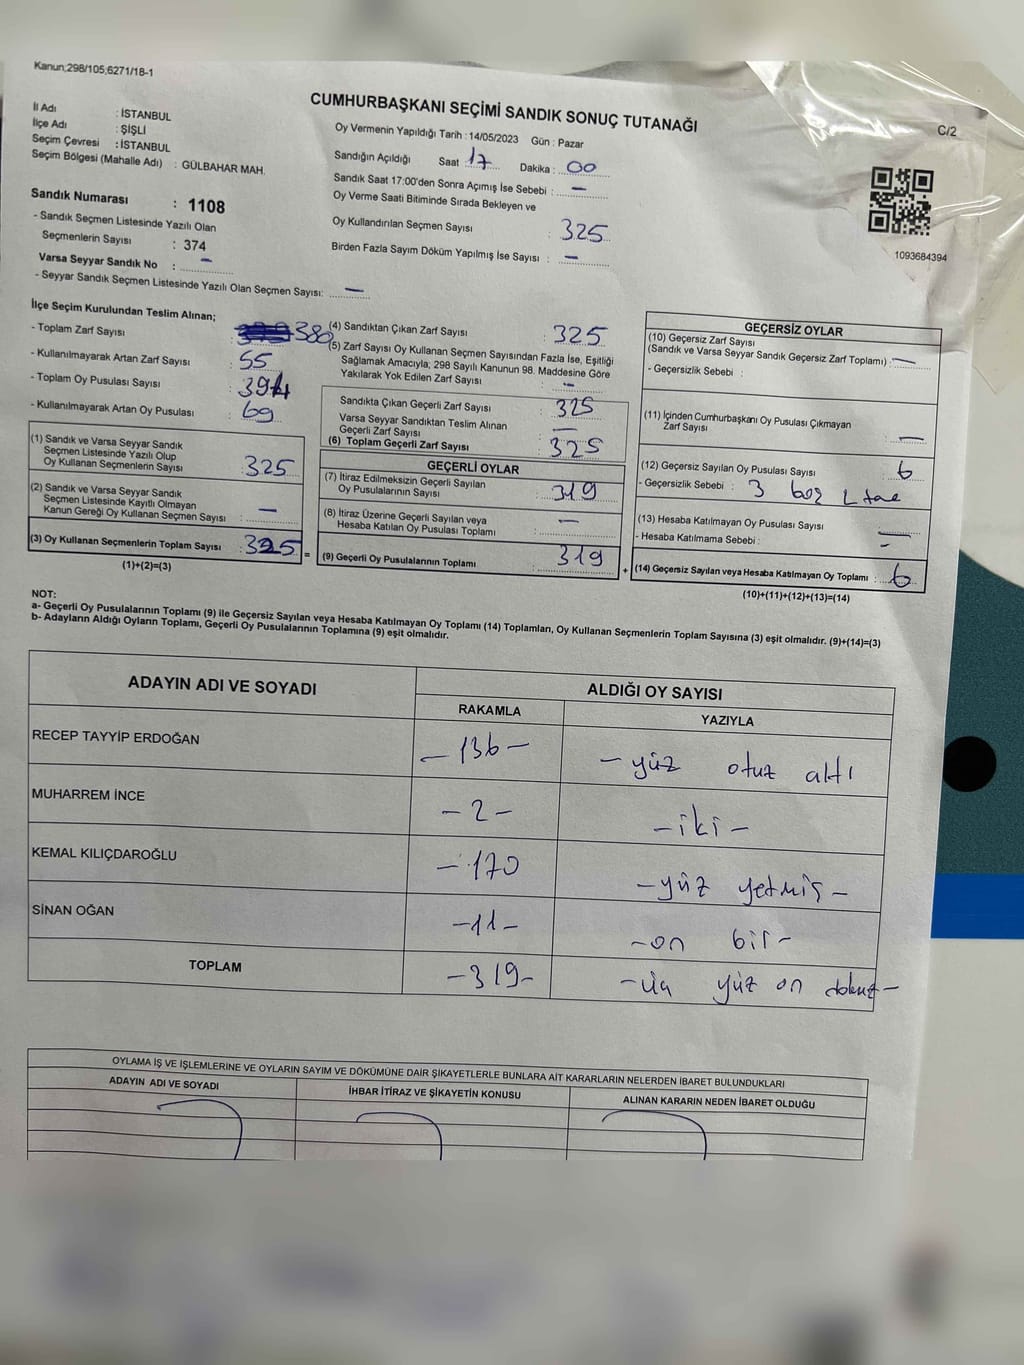 Kanun;298/105;6271/18-1
CUMHURBAŞKANI SEÇİMİ SANDIK SONUÇ TUTANAĞI
C/2
İl Adı : İSTANBUL
İlçe Adı : ŞİŞLİ
Seçim Çevresi : İSTANBUL
Seçim Bölgesi (Mahalle Adı) : GÜLBAHAR MAH.
Sandık Numarası : 1108
- Sandık Seçmen Listesinde Yazılı Olan
Seçmenlerin Sayısı : 374
Varsa Seyyar Sandık No : –
- Seyyar Sandık Seçmen Listesinde Yazılı Olan Seçmen Sayısı: –
Oy Vermenin Yapıldığı Tarih : 14/05/2023 Gün : Pazar
Sandığın Açıldığı Saat 17 Dakika : 00
Sandık Saat 17:00'den Sonra Açımış İse Sebebi : –
Oy Verme Saati Bitiminde Sırada Bekleyen ve
Oy Kullandırılan Seçmen Sayısı : 325
Birden Fazla Sayım Döküm Yapılmış İse Sayısı : –
1093684394
İlçe Seçim Kurulundan Teslim Alınan;
- Toplam Zarf Sayısı : 380
- Kullanılmayarak Artan Zarf Sayısı : 55
- Toplam Oy Pusulası Sayısı : 394
- Kullanılmayarak Artan Oy Pusulası : 69
(1) Sandık ve Varsa Seyyar Sandık
Seçmen Listesinde Yazılı Olup
Oy Kullanan Seçmenlerin Sayısı : 325
(2) Sandık ve Varsa Seyyar Sandık
Seçmen Listesinde Kayıtlı Olmayan
Kanun Gereği Oy Kullanan Seçmen Sayısı : –
(3) Oy Kullanan Seçmenlerin Toplam Sayısı : 325 =
(1)+(2)=(3)
(4) Sandıktan Çıkan Zarf Sayısı : 325
(5) Zarf Sayısı Oy Kullanan Seçmen Sayısından Fazla İse, Eşitliği
Sağlamak Amacıyla; 298 Sayılı Kanunun 98. Maddesine Göre
Yakılarak Yok Edilen Zarf Sayısı : –
Sandıkta Çıkan Geçerli Zarf Sayısı : 325
Varsa Seyyar Sandıktan Teslim Alınan
Geçerli Zarf Sayısı : –
(6) Toplam Geçerli Zarf Sayısı : 325
GEÇERLİ OYLAR
(7) İtiraz Edilmeksizin Geçerli Sayılan
Oy Pusulalarının Sayısı : 319
(8) İtiraz Üzerine Geçerli Sayılan veya
Hesaba Katılan Oy Pusulası Toplamı : –
(9) Geçerli Oy Pusulalarının Toplamı : 319 +
GEÇERSİZ OYLAR
(10) Geçersiz Zarf Sayısı
(Sandık ve Varsa Seyyar Sandık Geçersiz Zarf Toplamı) : –
- Geçersizlik Sebebi :
(11) İçinden Cumhurbaşkanı Oy Pusulası Çıkmayan
Zarf Sayısı : –
(12) Geçersiz Sayılan Oy Pusulası Sayısı : 6
- Geçersizlik Sebebi : 3 boş
(13) Hesaba Katılmayan Oy Pusulası Sayısı : –
- Hesaba Katılmama Sebebi : –
(14) Geçersiz Sayılan veya Hesaba Katılmayan Oy Toplamı : 6
(10)+(11)+(12)+(13)=(14)
NOT:
a- Geçerli Oy Pusulalarının Toplamı (9) ile Geçersiz Sayılan veya Hesaba Katılmayan Oy Toplamı (14) Toplamları, Oy Kullanan Seçmenlerin Toplam Sayısına (3) eşit olmalıdır. (9)+(14)=(3)
b- Adayların Aldığı Oyların Toplamı, Geçerli Oy Pusulalarının Toplamına (9) eşit olmalıdır.
ADAYIN ADI VE SOYADI ALDIĞI OY SAYISI
RAKAMLA YAZIYLA
RECEP TAYYİP ERDOĞAN – 136 – – yüz otuz altı
MUHARREM İNCE – 2 – – iki –
KEMAL KILIÇDAROĞLU – 170 – yüz yetmiş –
SİNAN OĞAN – 11 – – on bir –
TOPLAM – 319 – – üç yüz on dokuz –
OYLAMA İŞ VE İŞLEMLERİNE VE OYLARIN SAYIM VE DÖKÜMÜNE DAİR ŞİKAYETLERLE BUNLARA AİT KARARLARIN NELERDEN İBARET BULUNDUKLARI
ADAYIN ADI VE SOYADI İHBAR İTİRAZ VE ŞİKAYETİN KONUSU ALINAN KARARIN NEDEN İBARET OLDUĞU